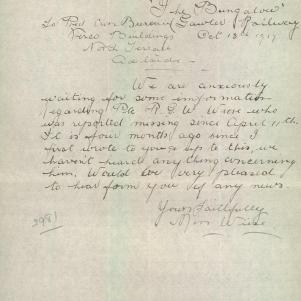 "The Bungalow"
To Red Cross Bureau Gawler Railway
Verco Buildings Oct 18th 1917
North Terrace
Adelaide
We are anxiously
waiting for some information
regarding Pte R. G. W. Wiese who
was reported missing since April 11th.
It is four months ago since I
first wrote to you & up to this, we
haven't heard anything concerning
him. Would be very pleased
to hear form you if any news.
Yours Faithfully
Wiese